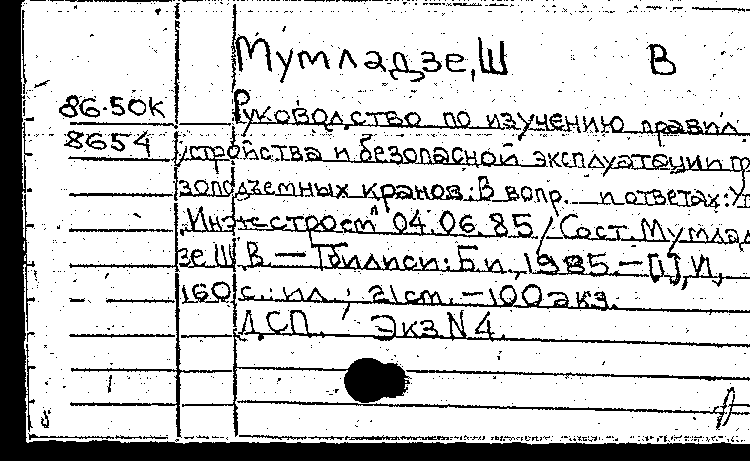 Мутладзе, Ш В
86.50К Руководство по изучению правил
8654 устройства и безопасной эксплуатации гр
зоподъемных кранов: В вопр. и ответах: Ут
"Инжестроем" 04.06.85 / Сост. Мутлад
зе Ш.В. — Тбилиси: Б.и., 1985. — [1], VI,
160 с.: ил.; 21 см. — 100 экз.
ДСП. Экз N 4.